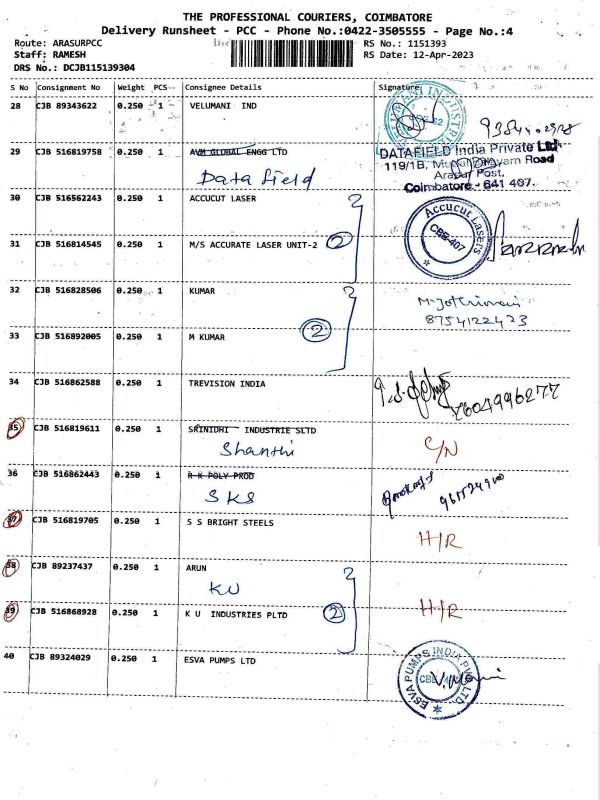 THE PROFESSIONAL COURIERS, COIMBATORE
Delivery Runsheet - PCC - Phone No.:0422-3505555 - Page No.:4
Route: ARASURPCC RS No.: 1151393
Staff: RAMESH RS Date: 12-Apr-2023
DRS No.: DCJB115139304
S No Consignment No Weight PCS Consignee Details Signature
28 CJB 89343622 0.250 1 VELUMANI IND
29 CJB 516819758 0.250 1 AVM GLOBAL ENGG LTD
Data field
DATAFIELD India Private Ltd.
119/1B, Road
Arasur Post,
Coimbatore - 641 407.
30 CJB 516562243 0.250 1 ACCUCUT LASER
Accucut Lasers
CBE-407
31 CJB 516814545 0.250 1 M/S ACCURATE LASER UNIT-2 2
32 CJB 516828506 0.250 1 KUMAR
8754122423
2
33 CJB 516892005 0.250 1 M KUMAR
34 CJB 516862588 0.250 1 TREVISION INDIA
7604996277
35 CJB 516819611 0.250 1 SRINIDHI INDUSTRIE SLTD
Shanthi C/N
36 CJB 516862443 0.250 1 R K POLY PROD
SKS
37 CJB 516819705 0.250 1 S S BRIGHT STEELS
H/R
38 CJB 89237437 0.250 1 ARUN
KU
39 CJB 516868928 0.250 1 K U INDUSTRIES PLTD 2 H/R
40 CJB 89324029 0.250 1 ESVA PUMPS LTD
ESVA PUMPS INDIA PVT LTD